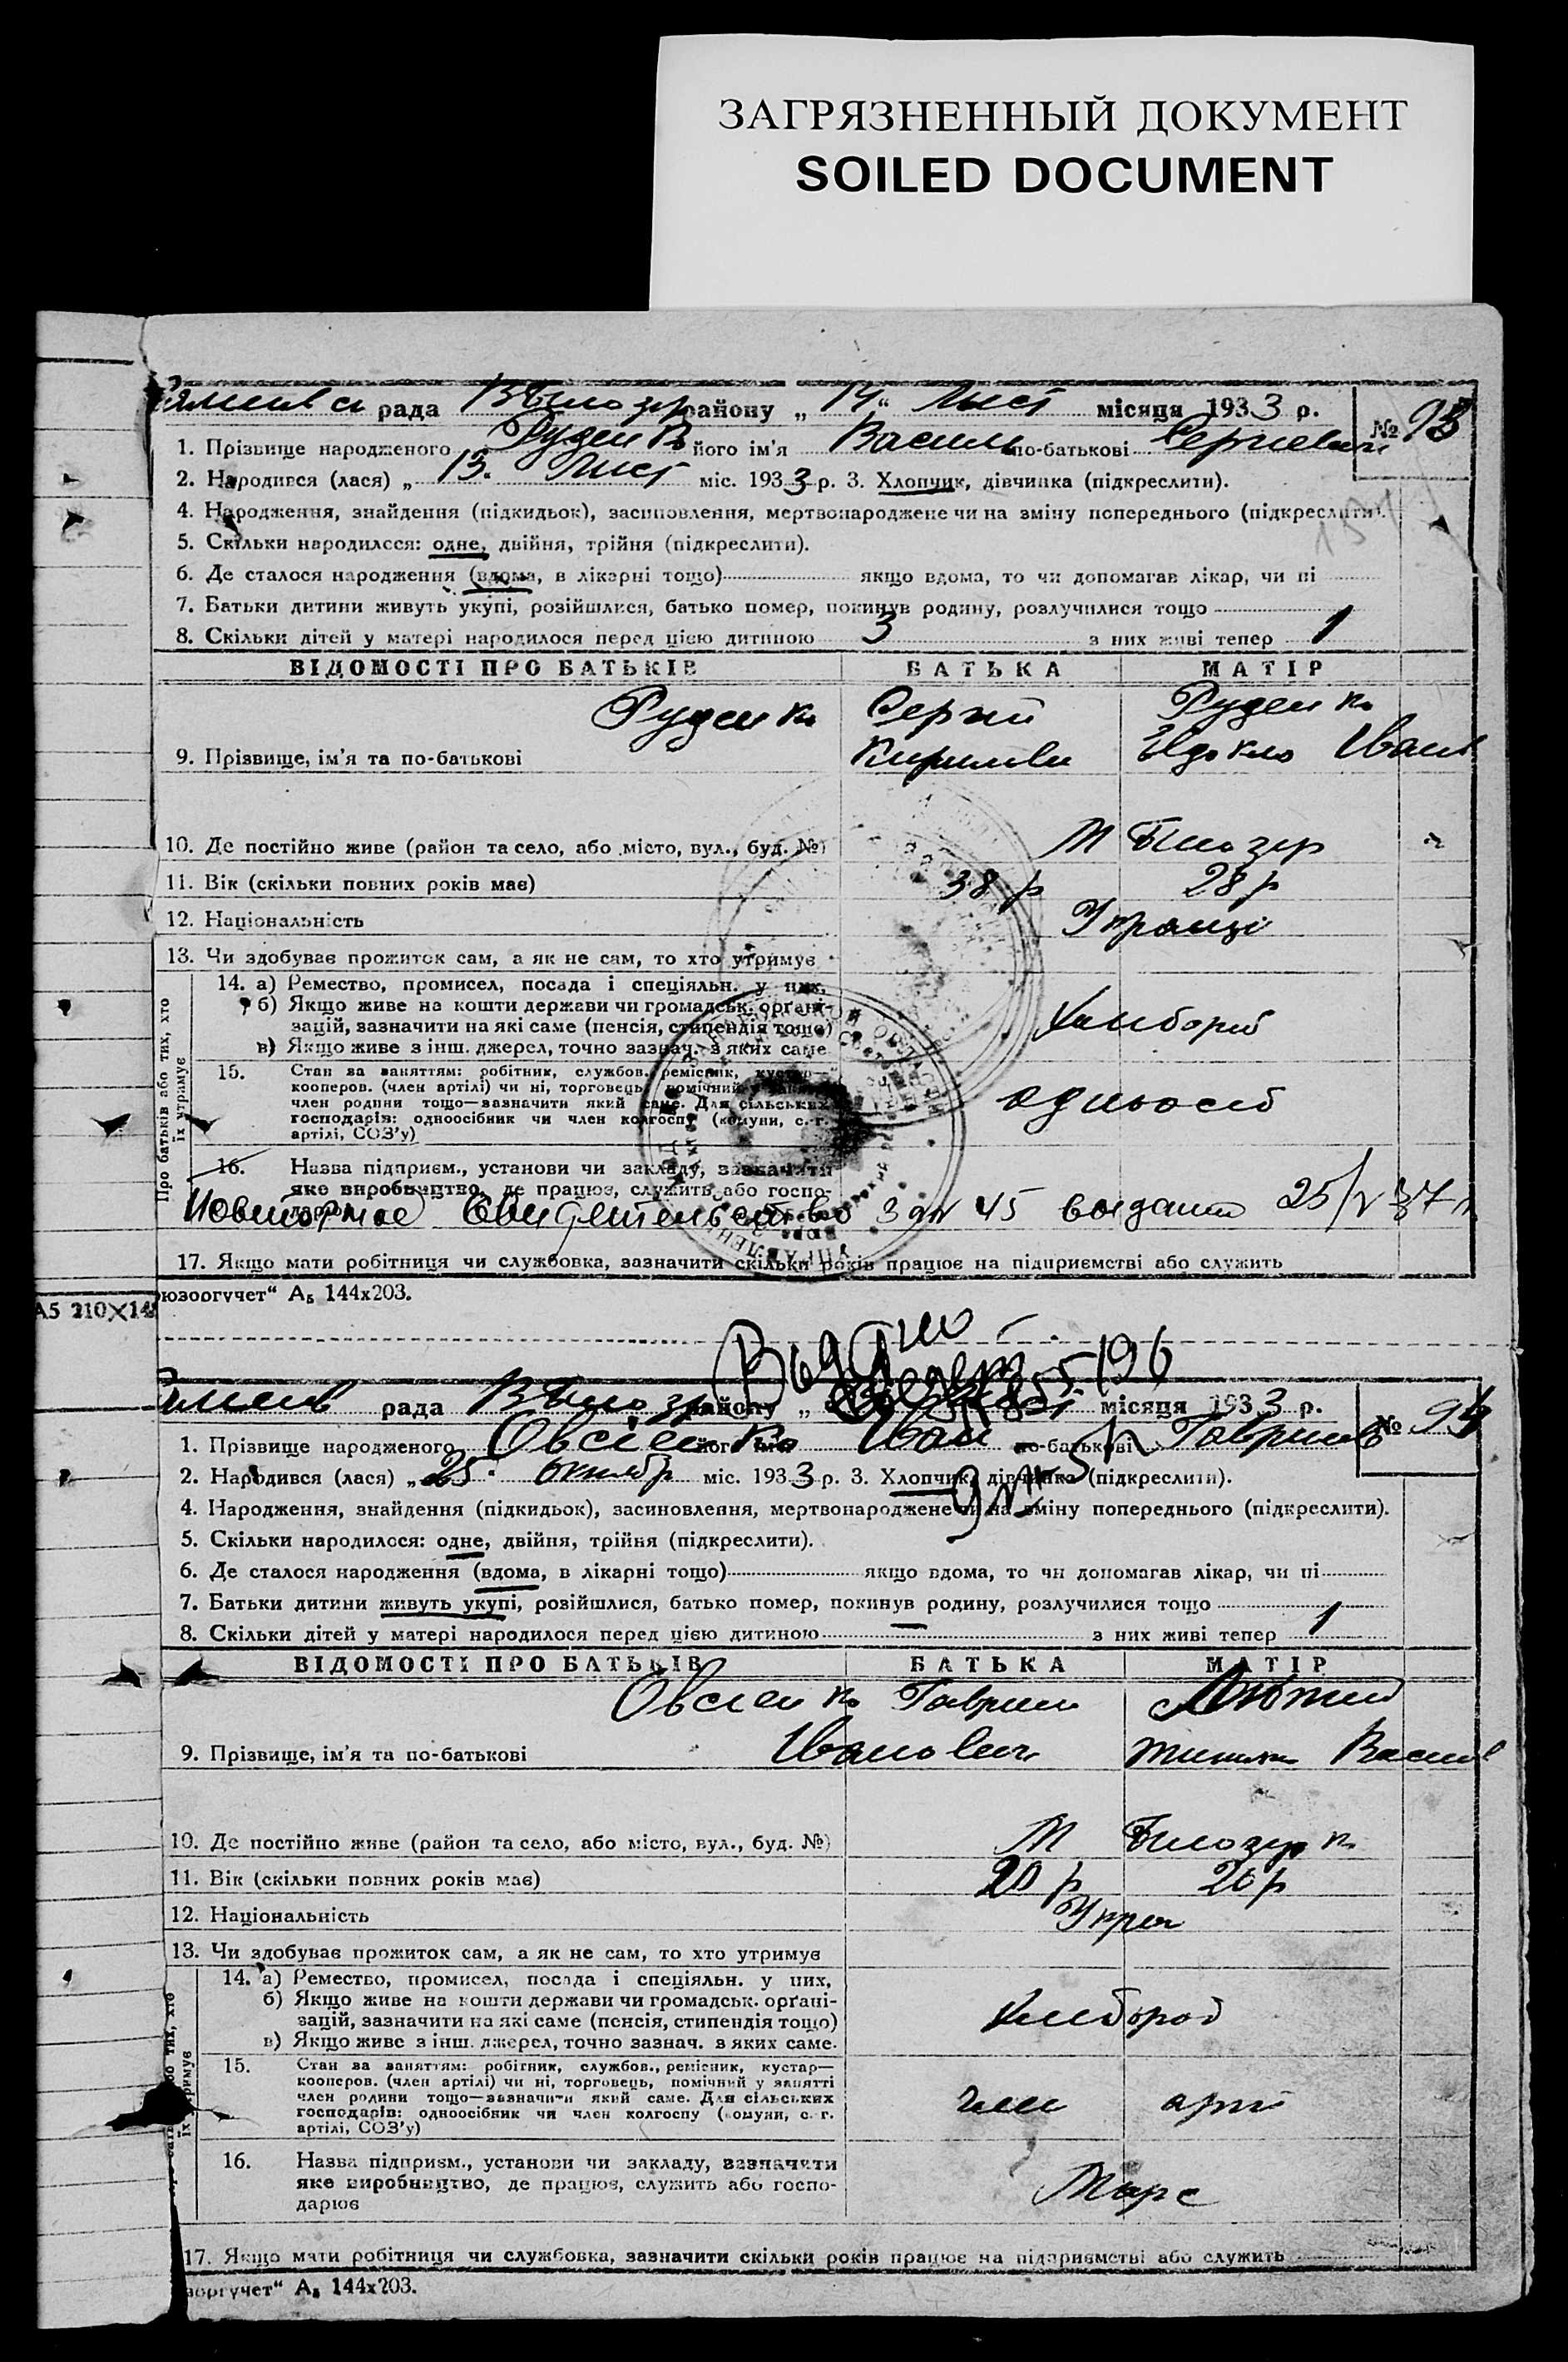 ЗАГРЯЗНЕННЫЙ ДОКУМЕНТ
SOILED DOCUMENT
рада району „14“ Лист місяця 1933 р. № 93
1. Прізвище народженого Руденко його ім'я Василь по-батькові Сергиевич
2. Народився (лася) „13. Лист міс. 1933 р. 3. Хлопчик, дівчинка (підкреслити).
4. Народження, знайдення (підкидьок), засиновлення, мертвонароджене чи на зміну попереднього (підкреслити).
5. Скільки народилося: одне, двійня, трійня (підкреслити).
6. Де сталося народження (вдома, в лікарні тощо) якщо вдома, то чи допомагав лікар, чи ні
7. Батьки дитини живуть укупі, розійшлися, батько помер, покинув родину, розлучилися тощо
8. Скільки дітей у матері народилося перед цією дитиною 3 з них живі тепер 1
ВІДОМОСТІ ПРО БАТЬКІВ БАТЬКА МАТІР
Руденко Сергий Руденко
9. Прізвище, ім'я та по-батькові
10. Де постійно живе (район та село, або місто, вул., буд. №) М Билозер
11. Вік (скільки повних років має) 38 р 28 р
12. Національність Украінці
13. Чи здобуває прожиток сам, а як не сам, то хто утримує
Про батьків або тих, хто їх утримує
14. а) Ремество, промисел, посада і спеціяльн. у них.
б) Якщо живе на кошти держави чи громадськ. орґані-
зацій, зазначити на які саме (пенсія, стипендія тощо) Хлибороб
в) Якщо живе з інш. джерел, точно зазнач. з яких саме
15. Стан за заняттям: робітник, службов., ремісник, кустар—
кооперов. (член артілі) чи ні, торговець, помічний у занятті
член родини тощо—зазначити який саме. Для сільських одноосіб
господарів: одноосібник чи член колгоспу (комуни, с.-г.
артілі, СОЗ'у)
16. Назва підприєм., установи чи закладу, зазначити
яке виробництво, де працює, служить або госпо-
Повторное Свидетельство 3 45 выдано 25/V 37
17. Якщо мати робітниця чи службовка, зазначити скільки років працює на підприємстві або служить
юзоргучет“ А₅ 144х203.
А5 210×14
Выдано
рада району „ місяця 1933 р. № 94
1. Прізвище народженого Овсіенко його ім'я Иван по-батькові
2. Народився (лася) „25. октябр міс. 1933 р. 3. Хлопчик, дівчинка (підкреслити).
4. Народження, знайдення (підкидьок), засиновлення, мертвонароджене чи на зміну попереднього (підкреслити).
5. Скільки народилося: одне, двійня, трійня (підкреслити).
6. Де сталося народження (вдома, в лікарні тощо) якщо вдома, то чи допомагав лікар, чи ні
7. Батьки дитини живуть укупі, розійшлися, батько помер, покинув родину, розлучилися тощо
8. Скільки дітей у матері народилося перед цією дитиною — з них живі тепер 1
ВІДОМОСТІ ПРО БАТЬКІВ БАТЬКА МАТІР
Овсіенко Гаврило
9. Прізвище, ім'я та по-батькові Иванович
10. Де постійно живе (район та село, або місто, вул., буд. №) М Билозерк
11. Вік (скільки повних років має) 20 р 20 р
12. Національність Укра
13. Чи здобуває прожиток сам, а як не сам, то хто утримує
14. а) Ремество, промисел, посада і спеціяльн. у них,
б) Якщо живе на кошти держави чи громадськ. орґані-
зацій, зазначити на які саме (пенсія, стипендія тощо) Хлибороб
в) Якщо живе з інш. джерел, точно зазнач. з яких саме.
15. Стан за заняттям: робітник, службов., ремісник, кустар—
кооперов. (член артілі) чи ні, торговець, помічний у занятті
член родини тощо—зазначити який саме. Для сільських член арті
господарів: одноосібник чи член колгоспу (комуни, с.-г.
артілі, СОЗ'у)
16. Назва підприєм., установи чи закладу, зазначити
яке виробництво, де працює, служить або госпо- Марс
дарює
17. Якщо мати робітниця чи службовка, зазначити скільки років працює на підприємстві або служить
зоргучет“ А₅ 144х203.